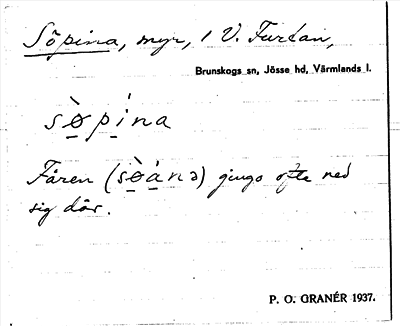 Söpina, myr, i V. Furtan,
Brunskogs sn, Jösse hd, Värmlands l.
sø̀pína
Fåren (sø̀ánə) gingo ofta ned
sig där.
P. O. GRANÉR 1937.